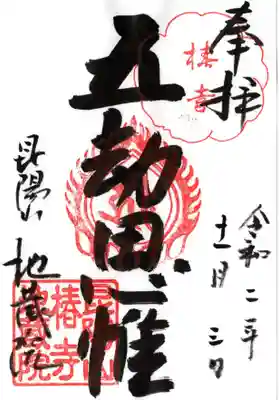 奉拝
椿寺
令和二年
十一月三日
五劫思惟
昆陽山
地蔵院
昆陽山
椿寺
地蔵院